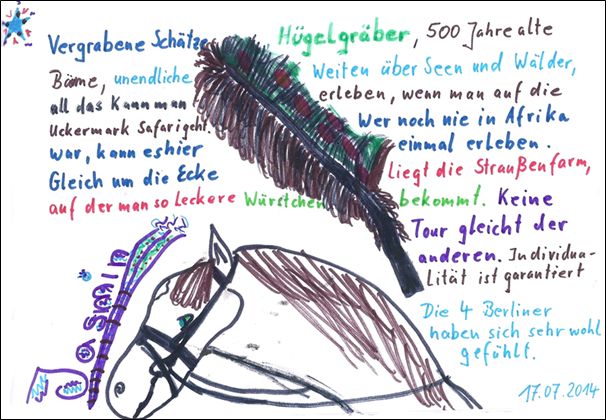 Vergrabene Schätze, Hügelgräber, 500 Jahre alte
Bäme, unendliche Weiten über Seen und Wälder,
all das kann man erleben, wenn man auf die
Uckermark Safari geht. Wer noch nie in Afrika
war, kann es hier einmal erleben.
Gleich um die Ecke liegt die Straußenfarm,
auf der man so leckere Würstchen bekommt. Keine
Tour gleicht der
anderen. Individua-
lität ist garantiert
Die 4 Berliner
haben sich sehr wohl
gefühlt.
17.07.2014